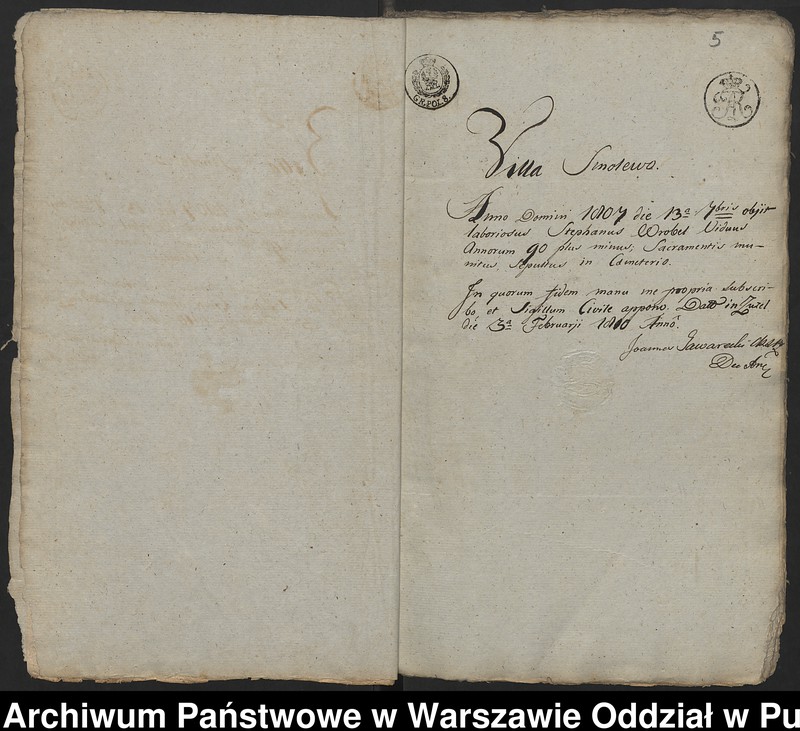 5
GR. POL 8.
Villa Smolewo.
Anno Domini 1807 die 13a 7bris objit
laboriosus Stephanus Wrobel Viduus
Annorum 90 plus minus; Sacramentis mu-
nitus, sepultus in Cæmeterio.
In quorum fidem manu me propria subscri-
bo, et Sigillum Civile appono. Datt in Zuzel
die 3a Februarji 1810 Anno.
Joannes Jawarecki
Dec
Archiwum Państwowe w Warszawie Oddział w Pu